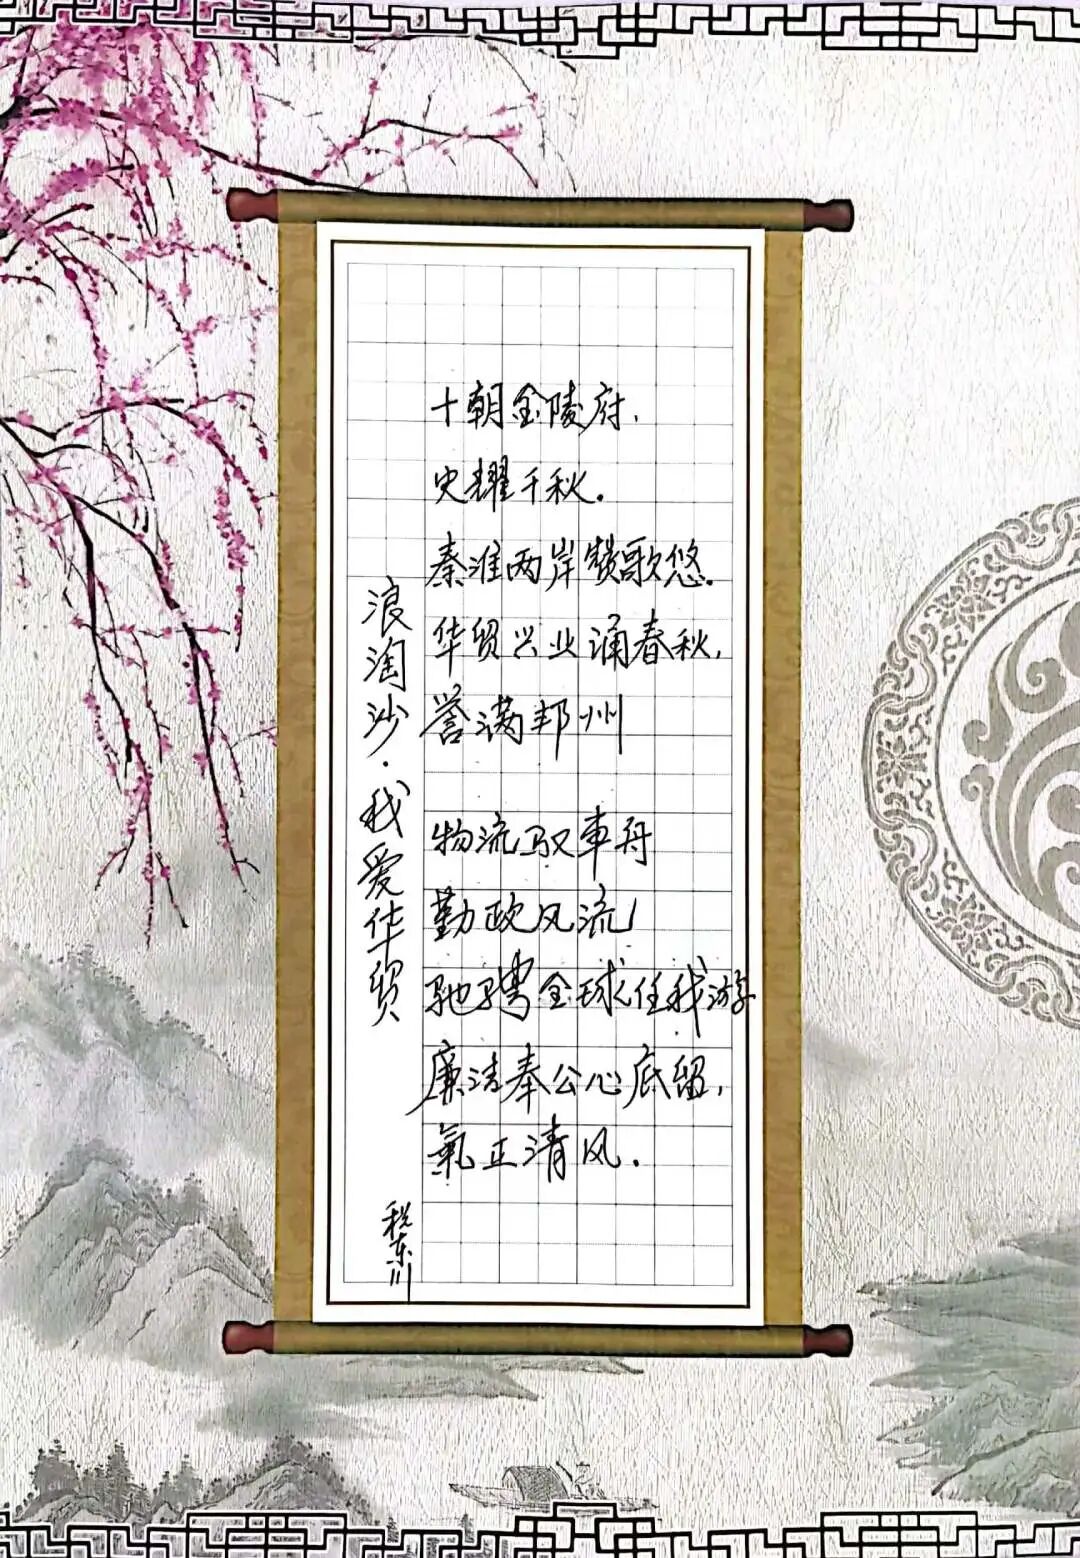 浪淘沙·我爱华贸
十朝金陵府,
史耀千秋.
秦淮两岸赞歌悠.
华贸兴业诵春秋,
誉满邦州
物流驭车舟
勤政风流!
驰骋全球任我游
廉洁奉公心底留,
氣正清风.
税东川